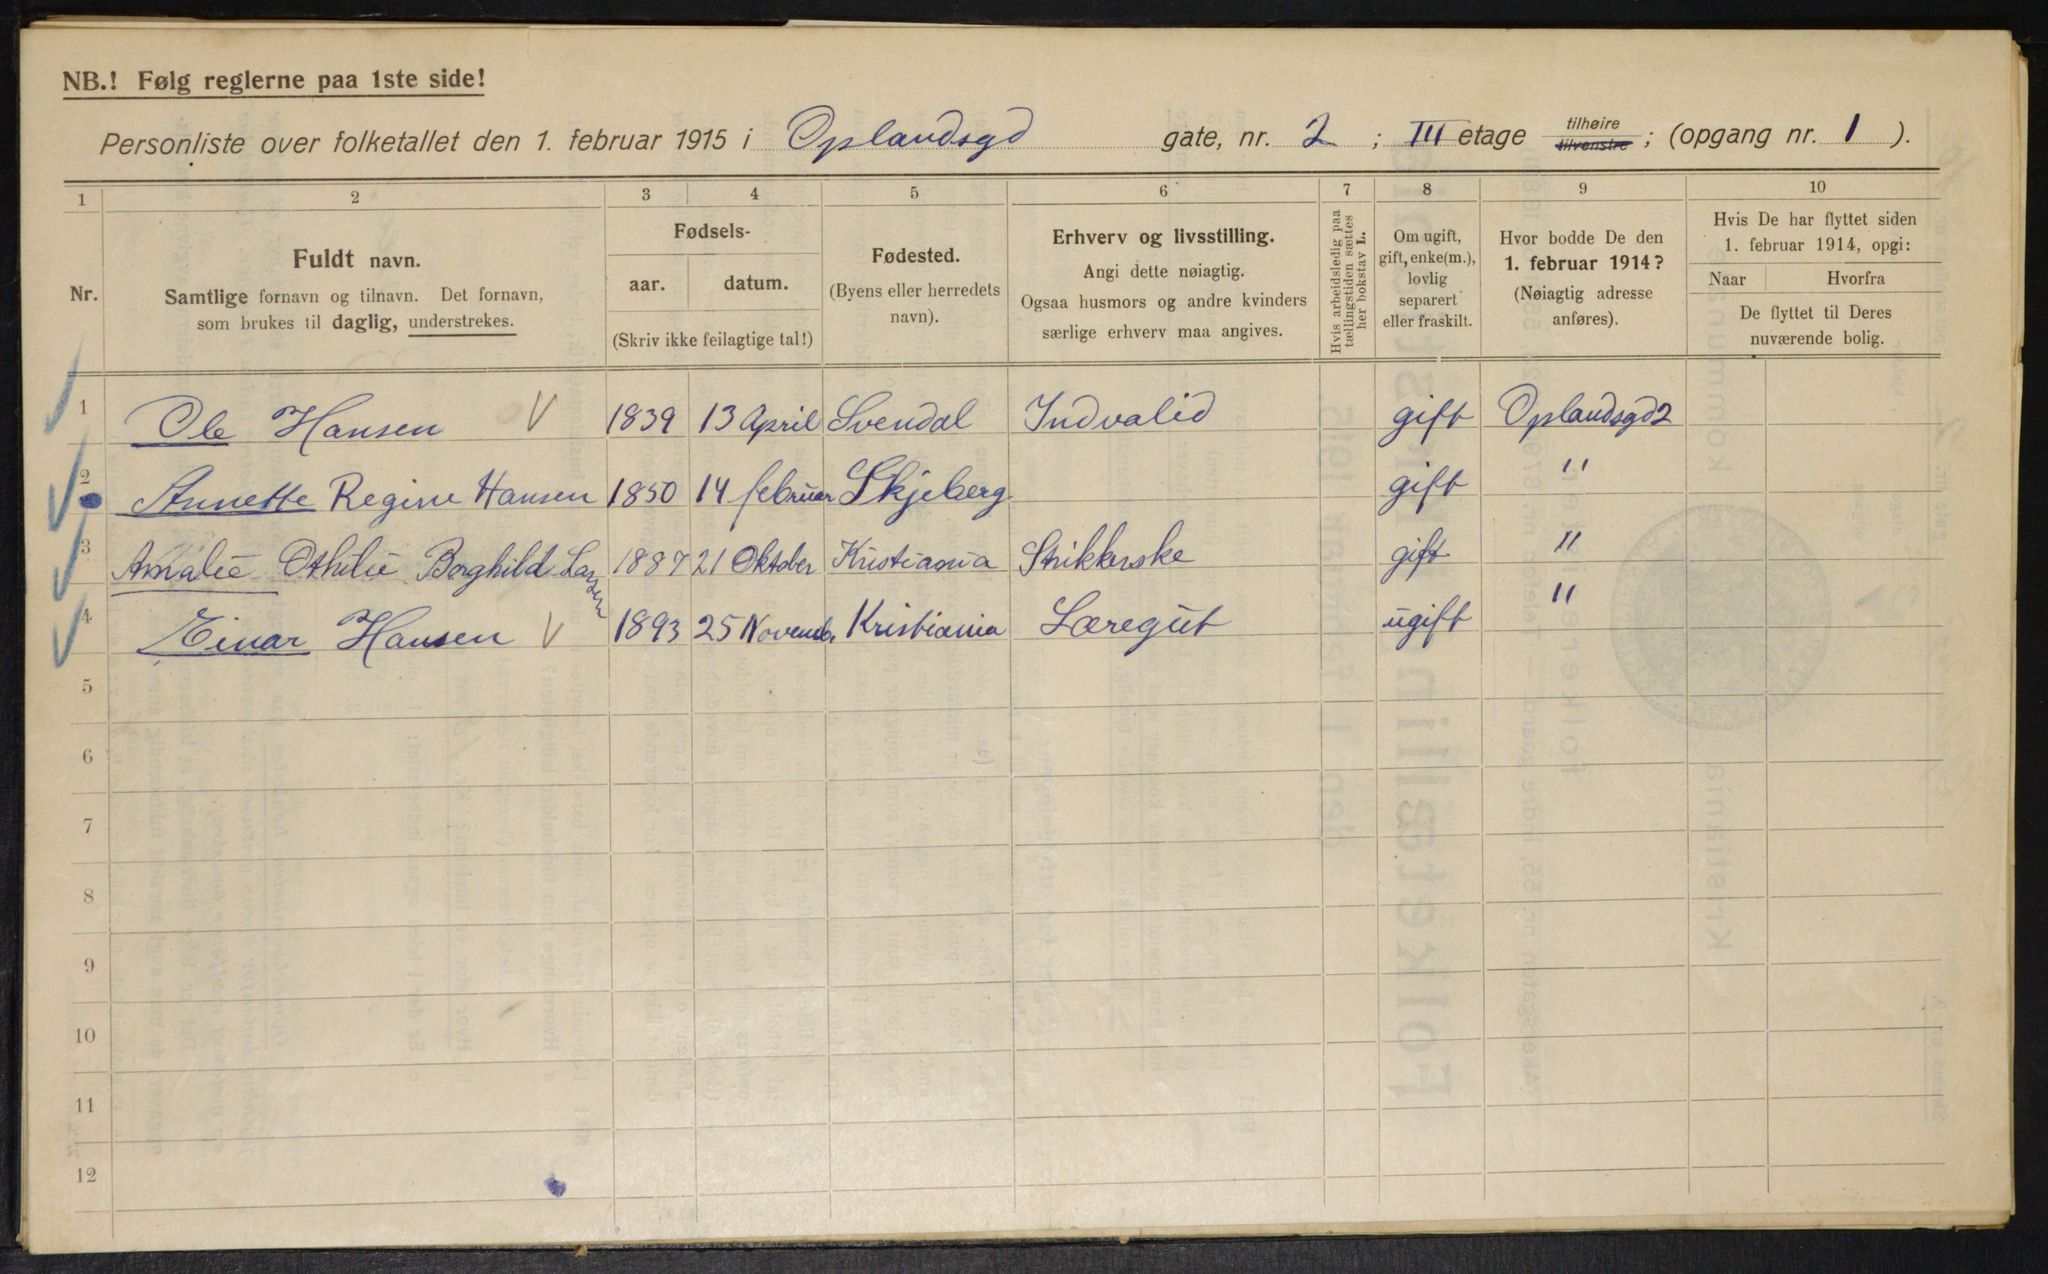 NB.! Følg reglerne paa 1ste side!
Personliste over folketallet den 1. februar 1915 i Oplandsgd gate, nr. 2 ; III etage tilhøire tilvenstre ; (opgang nr. 1 ).
1 2 3 4 5 6 7 8 9 10
Nr.
Fuldt navn.
Samtlige fornavn og tilnavn. Det fornavn,
som brukes til daglig, understrekes.
Fødsels-
aar. datum.
(Skriv ikke feilagtige tal!)
Fødested.
(Byens eller herredets
navn).
Erhverv og livsstilling.
Angi dette nøiagtig.
Ogsaa husmors og andre kvinders
særlige erhverv maa angives.
Hvis arbeidsledig paa
tællingstiden sættes
her bokstav L.
Om ugift,
gift, enke(m.),
lovlig
separert
eller fraskilt.
Hvor bodde De den
1. februar 1914?
(Nøiagtig adresse
anføres).
Hvis De har flyttet siden
1. februar 1914, opgi:
Naar Hvorfra
De flyttet til Deres
nuværende bolig.
1 Ole Hansen V 1839 13 April Svendal Indvalid gift Oplandsgd 2
2 Annette Regine Hansen 1850 14 februar Skjeberg gift "
3 Amalie Othilie Borghild Larsen 1887 21 Oktober Kristiania Strikkerske gift "
4 Einar Hansen V 1893 25 Novemb. Kristiania Læregut ugift "
5
6
7
8
9
10
11
12